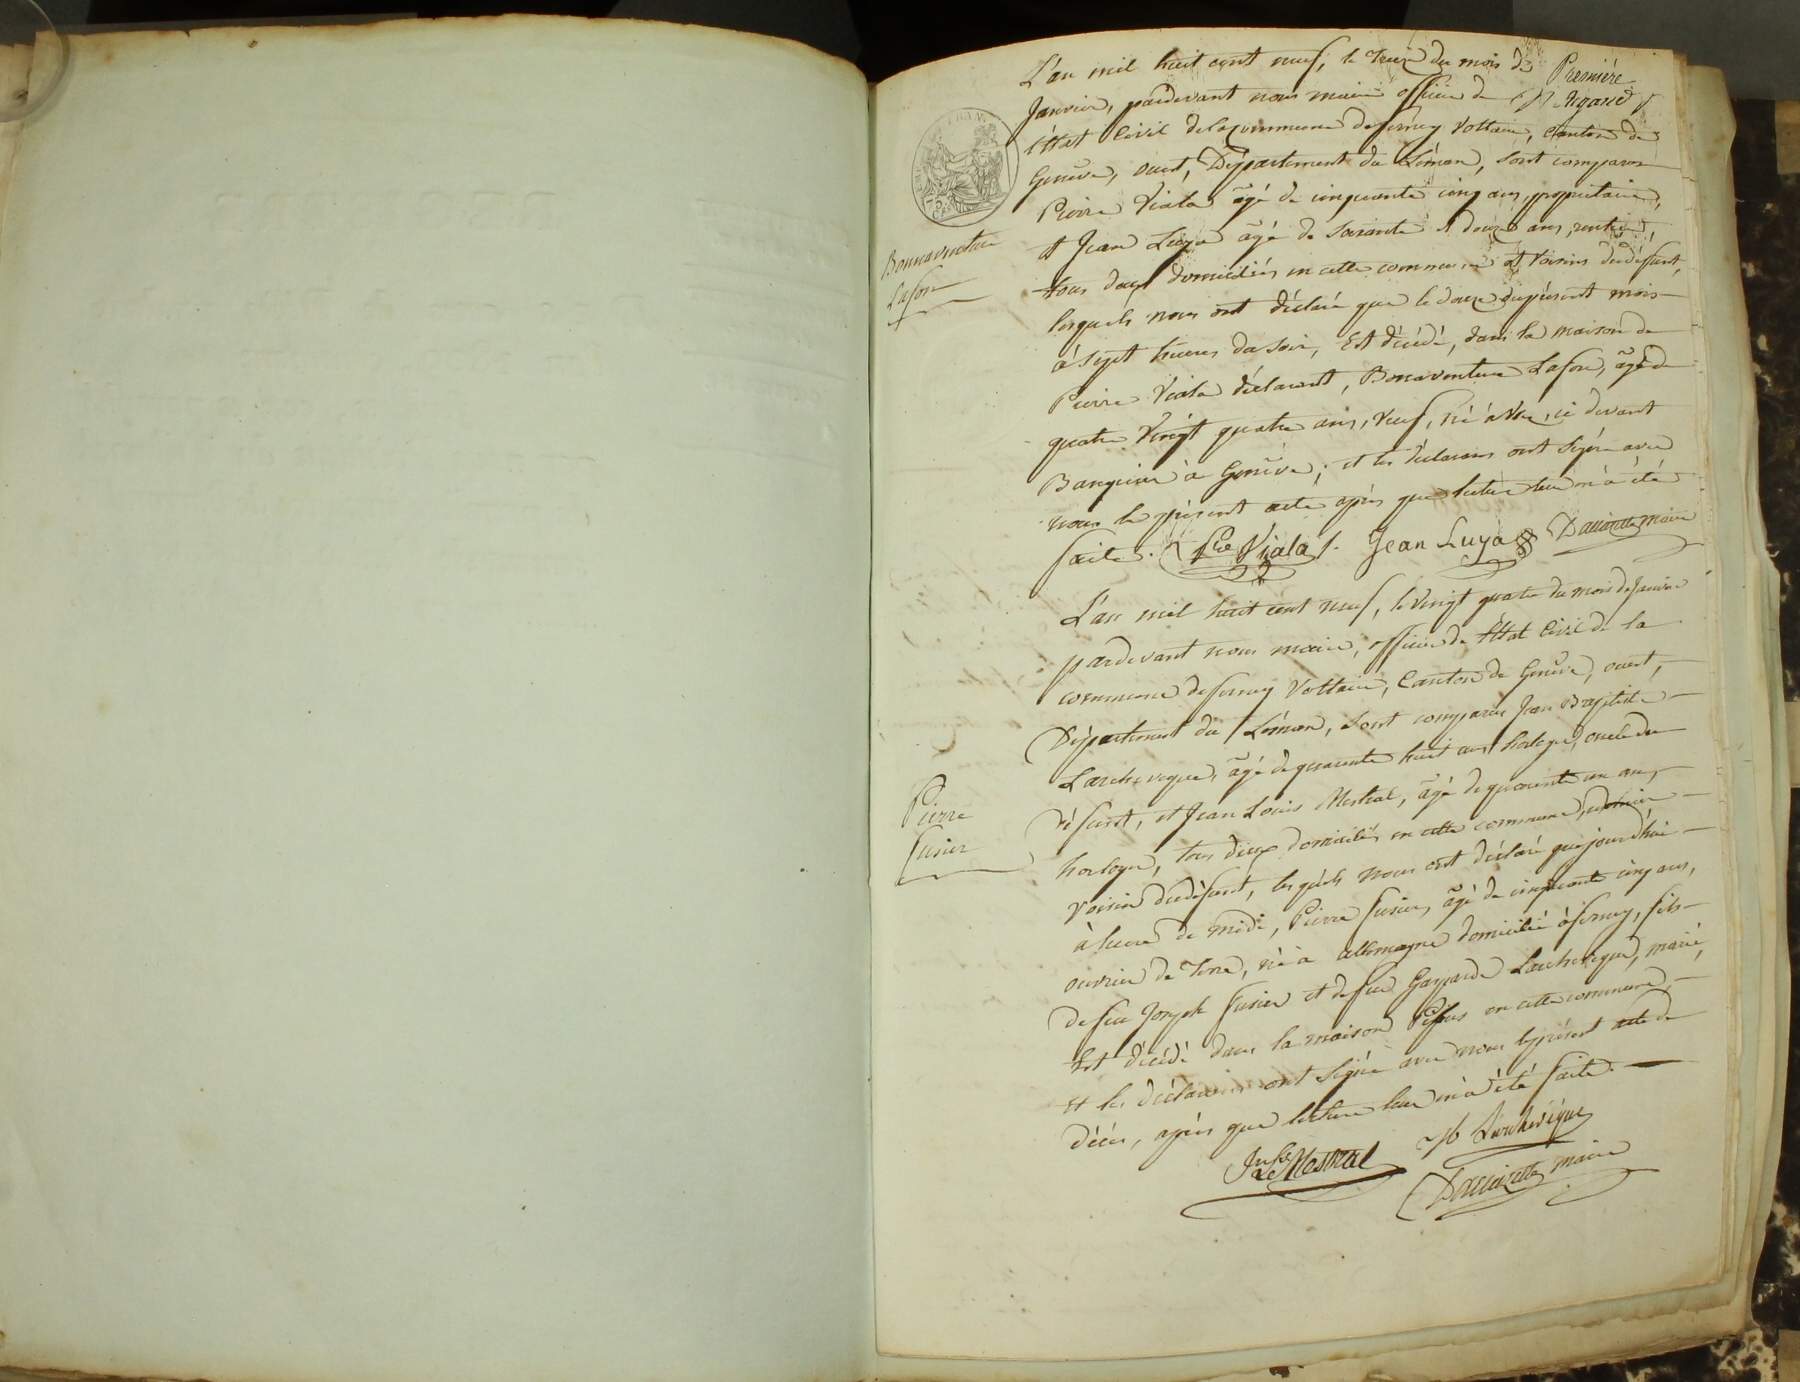 Première
P. Argand
L'an mil huit cent neuf, le treize du mois de
Janvier, pardevant nous maire officier de
l'état Civil de la commune de ferney Voltaire, Canton de
Genêve, ouest, Département du Léman, sont comparus
Pierre Viala âgé de cinquante cinq ans, propriétaire,
et Jean Luya âgé de Soixante & douze ans, rentier,
tous deux domiciliés en cette commune et Voisins du défunt,
lesquels nous ont déclaré que le douze du présent mois
à sept heures du Soir, Est décédé, dans la maison de
Pierre Viala déclarant, Bonaventure Lafon, âgé de
quatre Vingt quatre ans, Veuf, né à, ci devant
Banquier à Genêve; et les déclarans ont signé avec
nous le présent acte après que lecture leur en à été
faite. Pre Viala. Jean Luya maire
Bonnaventure
Lafon
L'an mil huit cent neuf, le Vingt quatre du mois de Janvier
pardevant nous maire, officier de l'état Civil de la
commune de ferney Voltaire, Canton de Genêve, ouest,
Département du Léman, sont comparus Jean Baptiste
Larcheveque, âgé de quarante huit ans, horloger, oncle du
défunt, et Jean Louis Mestral, âgé de quarante un an,
horloger, tous deux domiciliés en cette commune,
Voisin du défunt, lesquels nous ont déclaré que jourd'hui
à heure de midi, Pierre fusier, âgé de cinquante cinq ans,
ouvrier de Terre, né à allemogne domicilié à ferney, fils
de feu Joseph fusier et de feue Gasparde Larcheveque, marié,
Est décédé dans la maison en cette commune,
et les déclarans ont Signé avec nous le présent acte de
décès, après que lecture leur en à été faite.
Pierre
fusier
Jn Ls Mestral Jb Larchevêque
maire